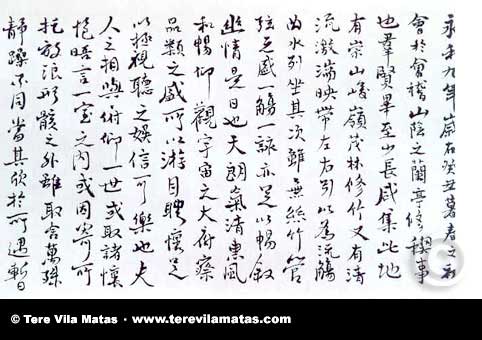 永和九年歲在癸丑暮春之初
會於會稽山陰之蘭亭修禊事
也羣賢畢至少長咸集此地
有崇山峻嶺茂林修竹又有清
流激湍映帶左右引以為流觴
曲水列坐其次雖無絲竹管
弦之盛一觴一詠亦足以暢敘
幽情是日也天朗氣清惠風
和暢仰觀宇宙之大俯察
品類之盛所以游目騁懷足
以極視聽之娛信可樂也夫
人之相與俯仰一世或取諸懷
抱晤言一室之內或因寄所
托放浪形骸之外雖取舍萬殊
靜躁不同當其欣於所遇暫
© Tere Vila Matas · www.terevilamatas.com